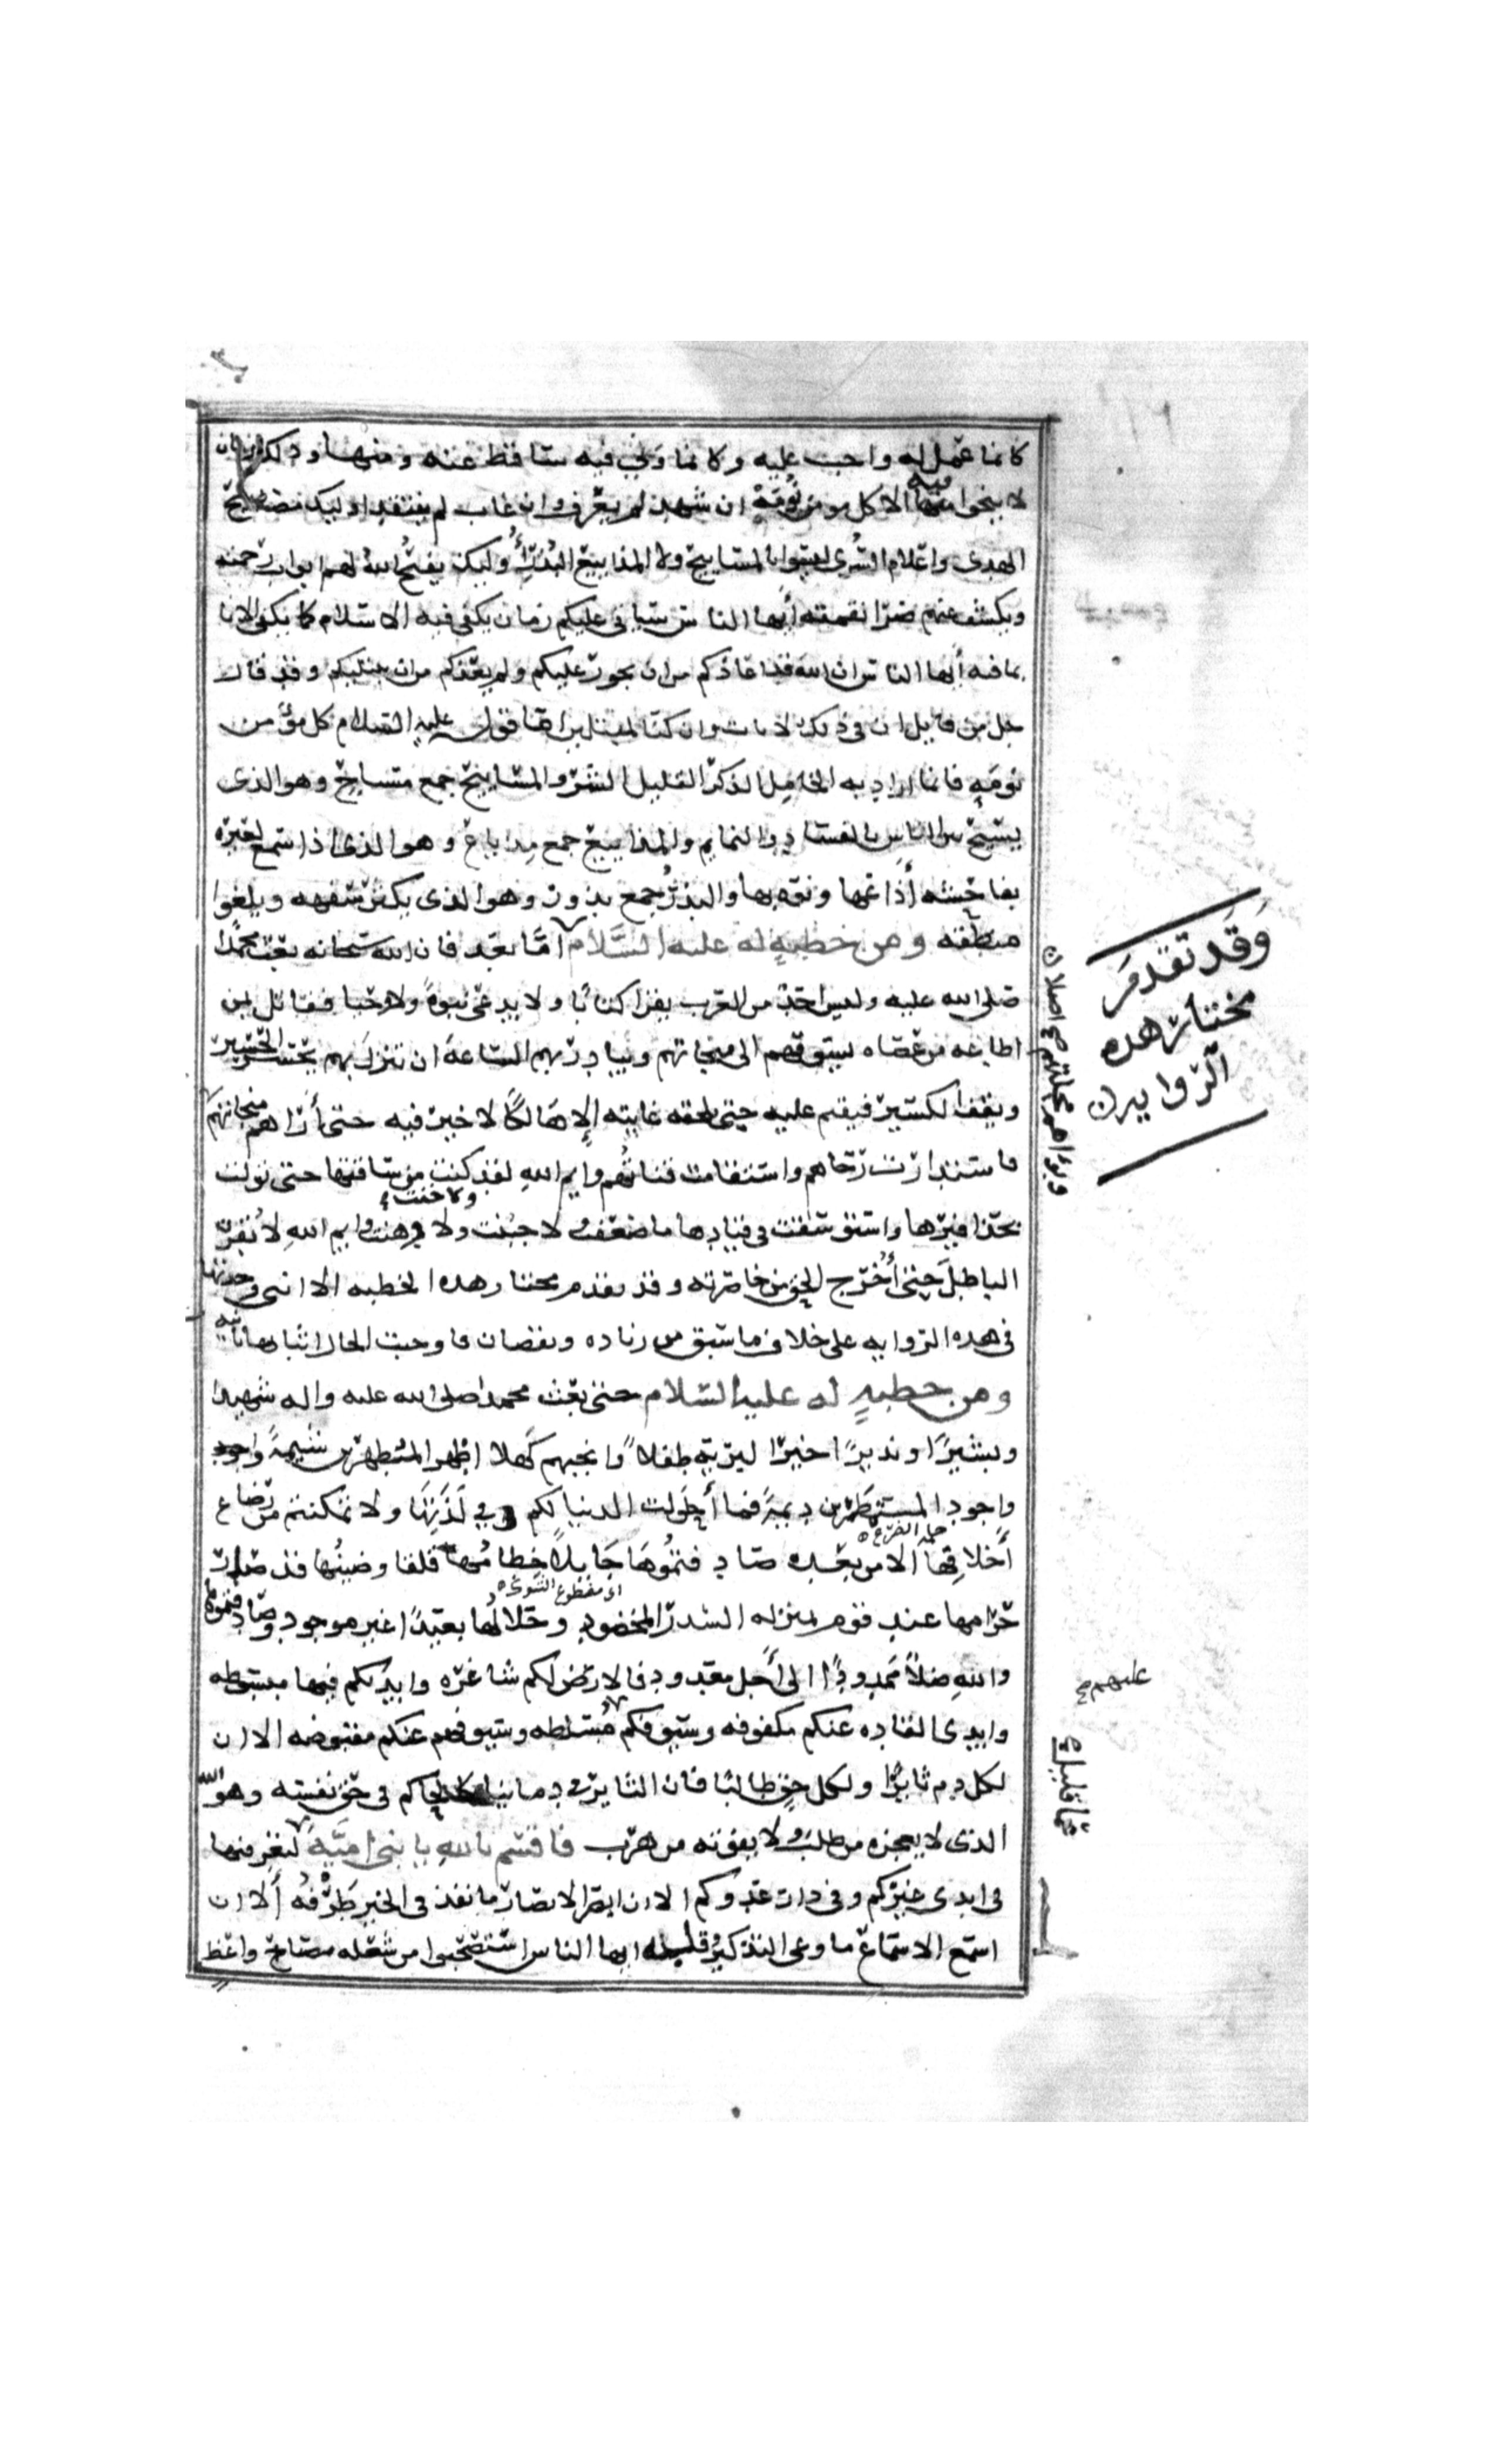 كانما عمل له واجب عليه وكانما ونى فيه ساقط عنه ومنها وذلك زمان
لا ينجوا فيه الا كل مومن نومة ان شهد لم يعرف وان غاب لم يفتقد اوليك مصابيح
الهدى واعلام السرى ليسوا بالمساييح ولا المذاييع البذر أوليك يفتح الله لهم ابواب رحمته
ويكشف عنهم ضرا نقمته أيها الناس سياتى عليكم زمان يكفى فيه الاسلام كما يكفى الانا
بما فيه أيها الناس ان الله قد اعاذكم من ان يجور عليكم ولم يعذكم من ان يبتليكم وقد قال
جل من قايل ان فى ذلك لايات وان كنا لمبتلين اما قوله عليه السلام كل مؤمن
نومة فانما اراد به الخامل الذكر القليل الشر والمساييح جمع مسياح وهو الذى
يسيح بين الناس بالفساد والنمايم والمذاييع جمع مذياع وهو الذى اذا سمع لغيره
بفاحشه أذاعها ونوه بها والبذر جمع بذور وهو الذى يكثر سفهه ويلغوا
منطقه ومن خطبة له عليه السَّلام امَّا بعد فان الله سبحانه بعث محمدًا
صلى الله عليه وليس احد من العرب يقرا كتابًا ولا يدعى نبوةً ولا وحيا فقاتل بمن
اطاعه من عصاه يسوقهم الى منجاتهم ويبادر بهم الساعة ان تنزل بهم يحسر الحسير
ويقف الكسير فيقيم عليه حتى يلحقه غايته إلا هالكًا لا خير فيه حتى أراهم منجاتهم
فاستدارت رحاهم واستقامت قناتهم وايم الله لقد كنت من ساقتها حتى تولت
بحذافيرها واستوسقت فى قيادها ما ضعفت ولا جبنت ولا خنت ولا وهنت وايم الله لابقرن
الباطل حتى أُخرج الحق من خاصرته وقد تقدم مختار هذه الخطبه الا اننى وجدتها
فى هذه الروايه على خلاف ما سبق من زياده ونقصان فاوجبت الحال اثباتها ثانيه
ومن خطبةٍ له عليه السلام حتى بعث محمدا صلى الله عليه واله شهيدا
وبشيرًا ونذيرًا خير البرية طفلاً وانجبهم كهلا اطهر المتطهرين شيمةً
واجود المستمطرين ديمةً فما أحلولت الدنيا لكم فى لذتها ولا تمكنتم من رضاع
أخلافها الا من بعده صادفتموها جايلاً خطامها قلقا وضينها قد صار
حرامها عند قوم بمنزله السدر المخضود وحلالها بعيدًا غير موجود وصادفتموها
والله ظلاً ممدودًا الى أجل معدود فالارض لكم شاغره وايديكم فيها مبسوطه
وايدى القاده عنكم مكفوفه وسيوفكم مسلطه وسيوفهم عنكم مقبوضه الا ان
لكل دم ثايرًا ولكل حق طالبًا فان الثاير فى دماينا كالحاكم فى حق نفسه وهو الله
الذى لا يعجزه من طلب ولا يفوته من هرب فاقسم بالله يا بنى اميَّة لتعرفنها
فى ايدى غيركم وفى دار عدوكم الا ان ابصر الابصار ما نفذ فى الخير طرفه ألا ان
اسمع الاسماع ما وعى التذكير وقبله ايها الناس استصبحوا من شعله مصباح واعظ
وَقد تقدمَ
مختار هذه
الروايه
وبوأهم محلتهم صح اصلا
عليهم
ولا خنت
اى مقطوع الشوك